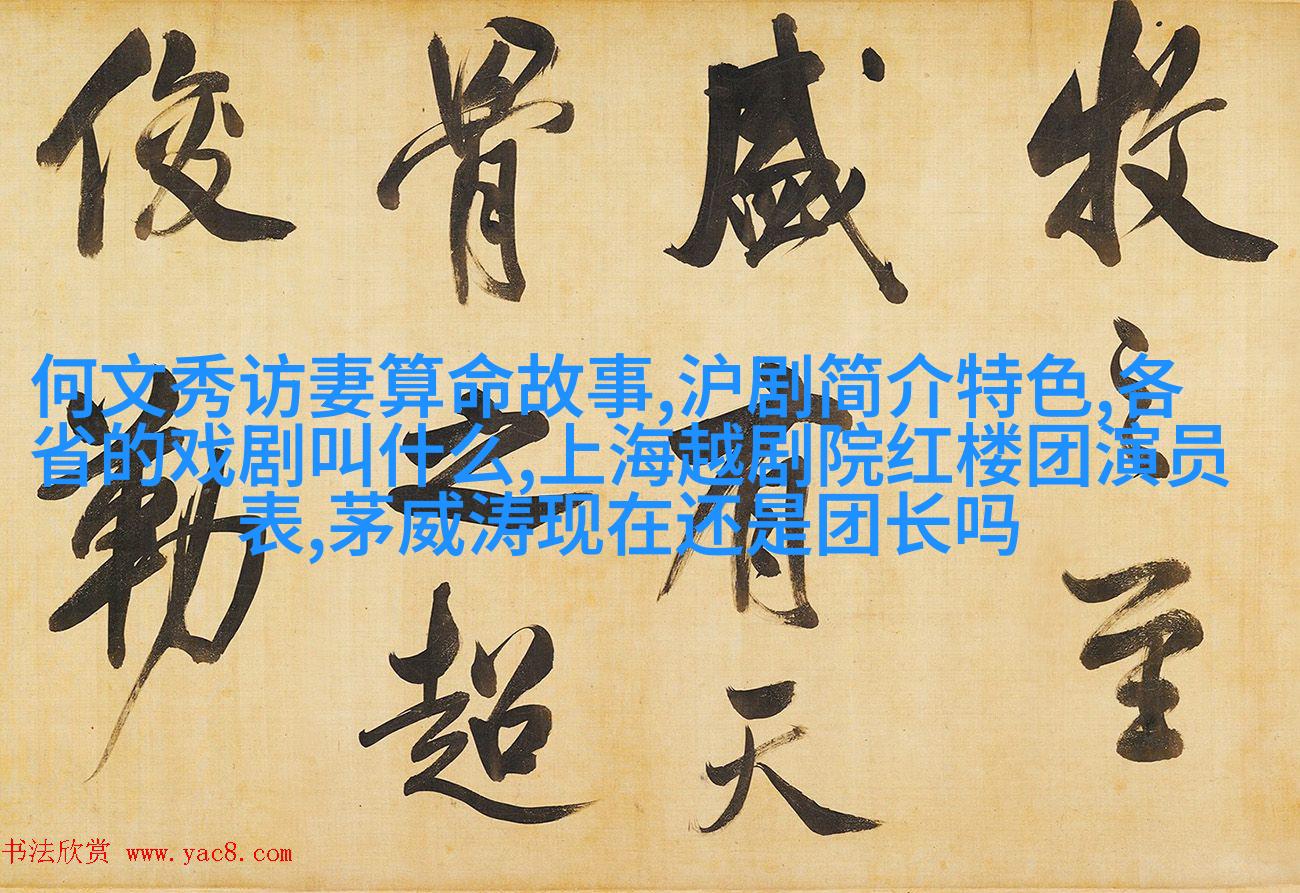 牧之至
盛有天
骨之超
俊勒
何文秀访妻算命故事,沪剧简介特色,各
省的戏剧叫什么,上海越剧院红楼团演员
表,茅威涛现在还是团长吗
书法欣赏 www.yac8.com